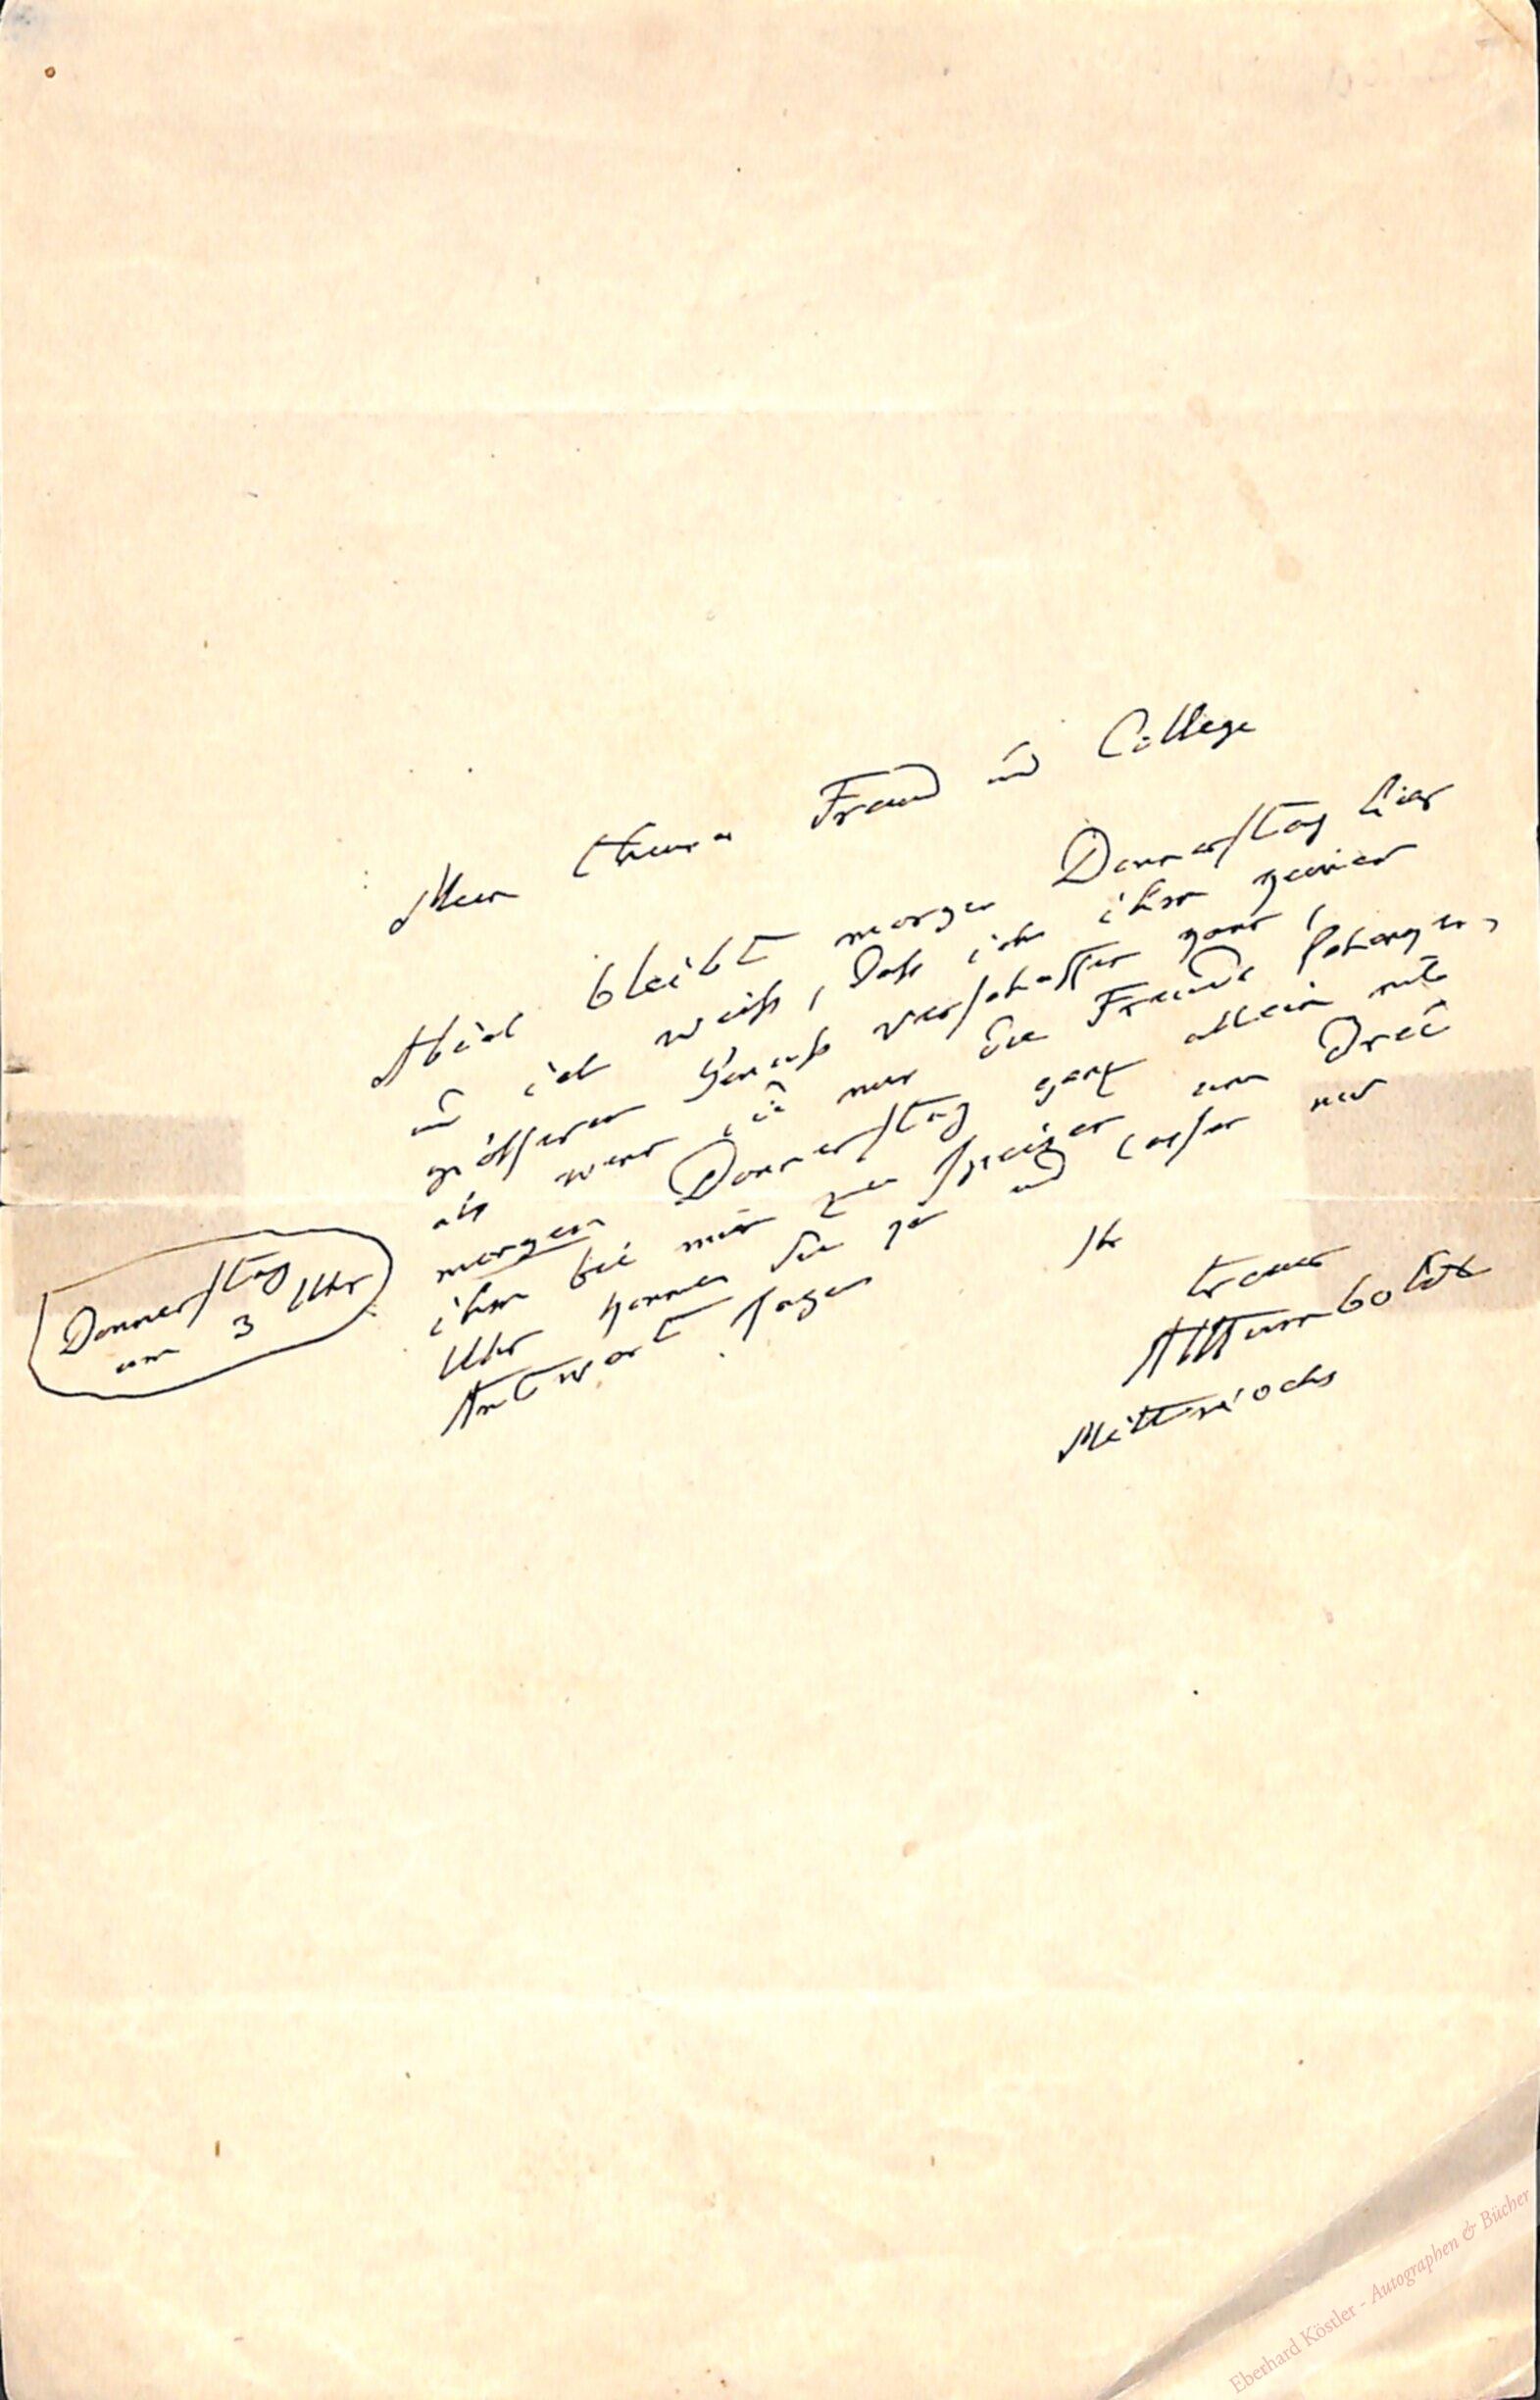 Mein theurer Freund und College
Abich bleibt morgen Donnerstag hier
und ich weiß, daß ich ihm keinen
größeren Genuß verschaffen kann,
als wenn ich nur die Freude
morgen Donnerstag ganz allein mit
ihm bei mir zu speisen um Drei
Uhr können Sie ja und lassen nur
Antwort sagen
Ihr
treuer
AHumboldt
Mittwochs
Donnerstag
um 3 Uhr
Eberhard Köstler - Autographen & Bücher